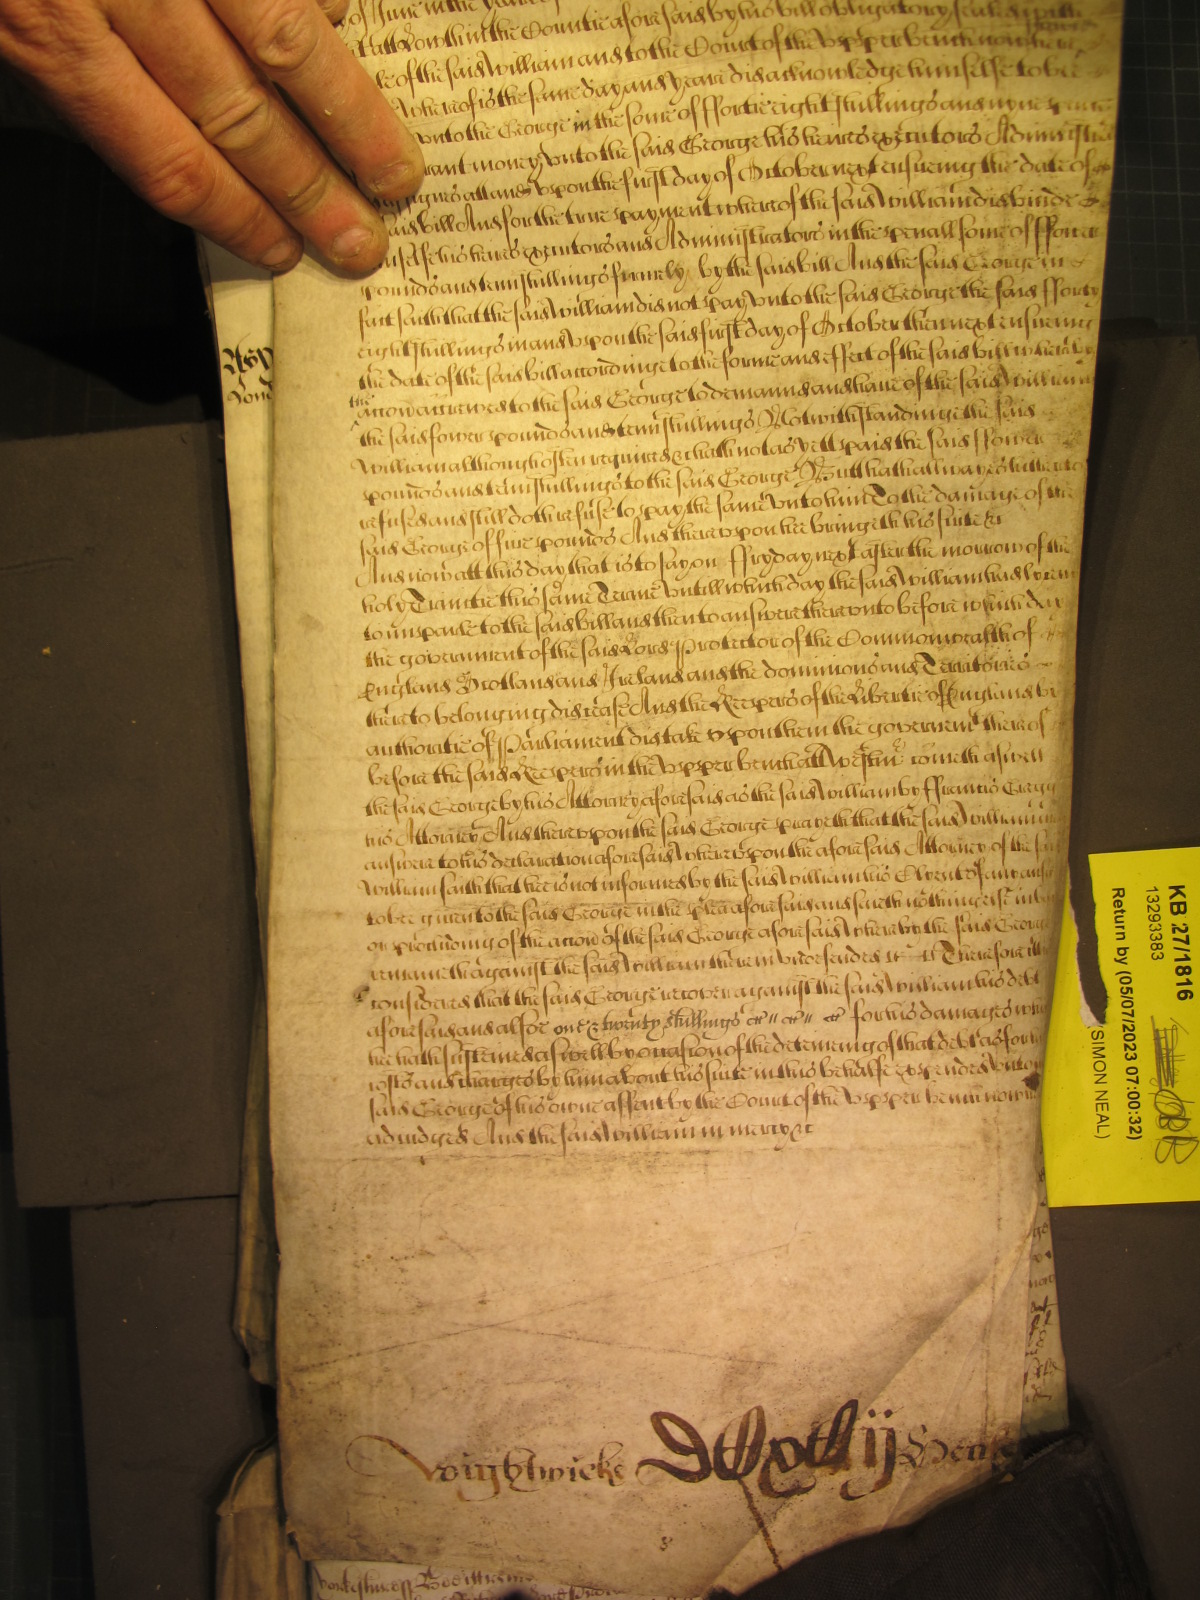 of June in the yeare
in the Countie aforesaid by his bill obligatory sealed with
le of the said William and to the Court of the Upper bench now here
whereof is the same day and yeare did acknowledge himselfe to bee
unto the George in the some of ffortie eight shillings and nyne pence
money unto the said George his heires executors Administra
assignes att and upon the first day of October next ensueing the date of
said bill And for the true payment whereof the said William did binde
himselfe his heires executors and Administrators in the penall some of ffower
pounds and tenn shillings firmely by the said bill And the said George in
fact saith that the said William did not pay unto the said George the said fforty
eight shillings in and upon the said first day of October then next ensueing
the date of the said bill accordinge to the forme and effect of the said bill whereby
the
accon accrewed to the said George to demannd and have of the said William
the said fower pounds and tenn shillings Notwithstandinge the said
William although often required &c hath not as yett paid the said ffower
pounds and tenn shillings to the said George But hath allwayes hitherto
refused and still doth refuse to pay the same unto him To the damage of the
said George of five pounds And thereupon hee bringeth his suite &c
And now att this day that is to say on ffryday next after the morrow of the
holy Trinitie this same Terme untill which day the said William had lycence
to imparle to the said bill and then to answere thereunto before which day
the government of the said Lord Protector of the Commonwealth of
England Scotland and Ireland and the dominions and Territories
thereto belonging did cease And the Keepers of the Libertie of England by
authoritie of Parliament did take upon them the governemt thereof
before the said Keepers in the Upper bench att Westmr cometh aswell
the said George by his Attorney aforesaid as the said William by ffrancis Gregg
his Attorney And thereupon the said George prayeth that the said William may
answere to his declaration aforesaid Whereupon the aforesaid Attorney of the said
William saith that hee is not informed by the said William his Clyent of any answere
to bee given to the said George in the plea aforesaid and saieth nothing else in barr
or precluding of the accon of the said George aforesaid whereby the said George
remaineth against the said William therein undefended &c Therefore itt is
considered that the said George recover against the said William his debt
aforesaid and alsoe one & twenty shillings for his damages which
hee hath susteined aswell by occasion of the deteineing of that debt as for his
costs and charges by him about his suite in this behalfe expended unto the
said George of his owne assent by the Court of the Upper bench now here
adiudged And the said William in mercy &c
Wightwicke
KB 27/1816
13293383
Return by (05/07/2023 07:00:32)
(SIMON NEAL)